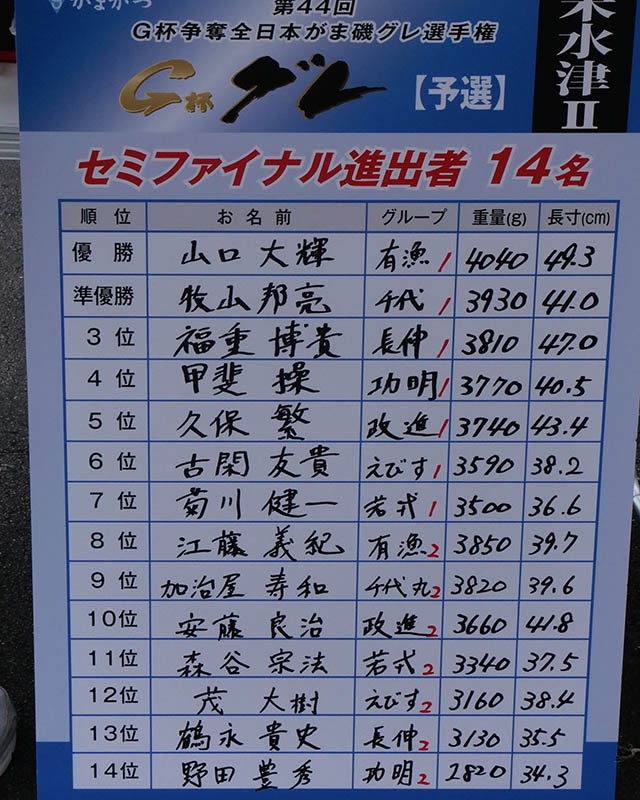 がまかつ
第44回
G杯争奪全日本がま磯グレ選手権
G杯 グレ 【予選】
米水津II
セミファイナル進出者 14名
順位 お名前 グループ 重量(g) 長寸(cm)
優勝 山口 大輝 有漁 1 4040 49.3
準優勝 牧山邦亮 千代 1 3930 41.0
3位 福重 博貴 長伸 1 3810 47.0
4位 甲斐 操 功明 1 3770 40.5
5位 久保 繁 政進 1 3740 43.4
6位 古閑 友貴 えびす 1 3590 38.2
7位 菊川 健一 若戎 1 3500 36.6
8位 江藤 義紀 有漁 2 3850 39.7
9位 加治屋 寿和 千代丸 2 3820 39.6
10位 安藤 良治 政進 2 3660 41.8
11位 森谷 宗法 若戎 2 3340 37.5
12位 茂 大樹 えびす 2 3160 38.4
13位 鶴永 貴史 長伸 2 3130 35.5
14位 野田 豊秀 功明 2 2820 34.3